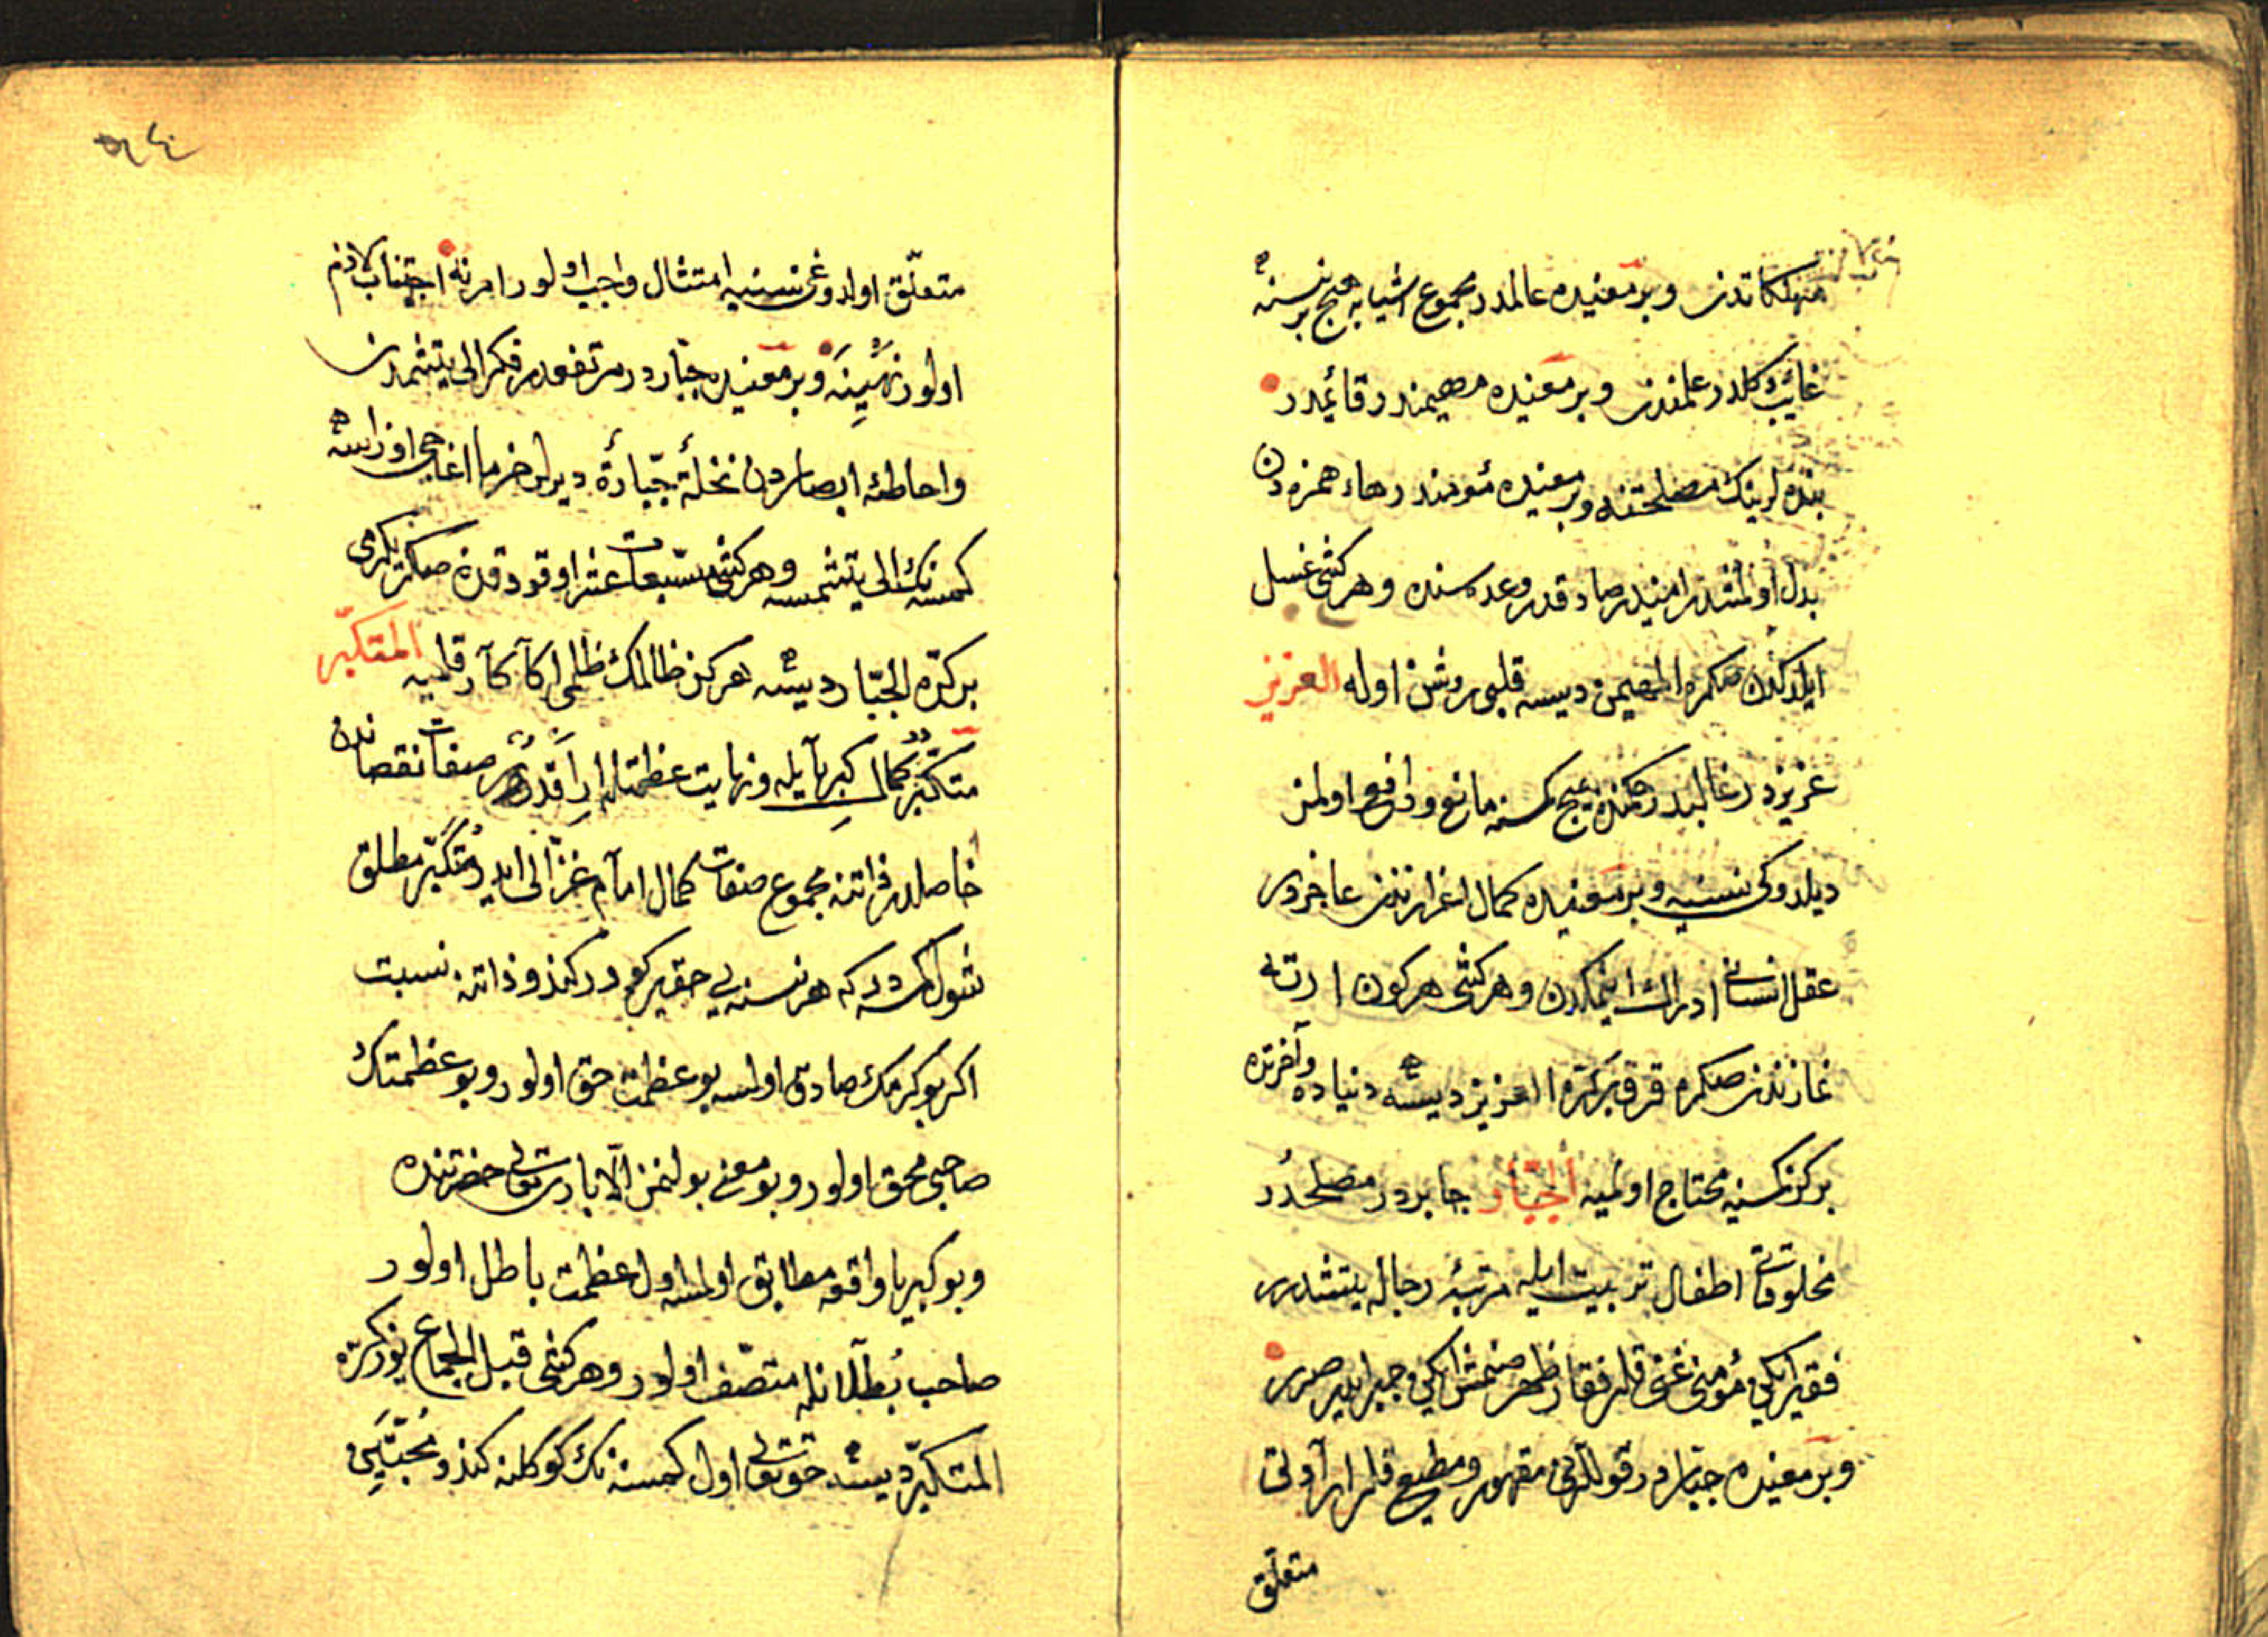 مهلكاتدن وبر معنیده عالمدر مجموع اشیایه هیچ بر نسنه
غائب دكلدر علمندن وبر معنیده مهیمندر قائمدر
بنده لرینك مصلحتنه وبر معنیده مؤمندر هاء همزه دن
بدل اولمشدر امیندر صادقدر وعده سنده وهر كشی غسل
ایلدكدن صكره المهیمن دیسه قلبی روشن اوله العزیز
عزیزدر غالبدر حكمنده هیچ كمسنه مانع ودافع اولمز
دیلدوكی نسنیه وبر معنیده كمال اعزازندن عاجزدر
عقل انسانی ادراك ایتمكدن وهر كشی هر كون ارته
نمازندن صكره قرق بر كره العزیز دیسه دنیاده وآخرتده
بركز كمسنیه محتاج اولمیه الجبّار جابردر مصلحدر
مخلوقاتی اطفال تربیت ایله مرتبۀ رجاله یتشدرر
فقیر ایكن مؤمنی غنی قلر فقار ظهر صنمش ایكن جبر ایدر صرر
وبر معنیده جبّاردر قوللرینی مقهور ومطیع قلر ارادتی
متعلّق
متعلّق اولدوغی نسنیه امتثال واجب اولور امرنه اجتناب لازم
اولور نهیینه وبر معنیده جبّاردر مرتفعدر فكر الی یتشمدن
واحاطۀ ابصاردن نخلة جبّارة دیرلر خرما اغاجی اوزاسه
كمسنه نك الی یتشمسه وهر كشی مسبّعات عشر اوقودقدن صكره یكرمی
بر كره الجبّار دیسه هركز ظالمك ظلمی اكا كار قلمیه المتكبّر
متكبّر كمال كبریا ایله ونهایت عظمتله صفات نقصاندن
حاصلدر ذاتنه مجموع صفات كمال امام غزّالی ایدر متكبّر مطلق
شول كمسه در كه هر نسنه یی حقیر كورر كندو ذاتنه نسبت
اكر بو كورمك صادق اولسه بو عظمت حق اولور وبو عظمتك
صاحبی محق اولور وبو معنی بولنمز الّا باری تعالی حضرتنده
وبو كبریا واقعه مطابق اولمسه اول عظمت باطل اولور
صاحب بطلانله متصف اولور وهر كشی قبل الجماع یوز كره
المتكبّر دیسه حق تعالی اول كمسنه نك كوكلنه كندو محبّتین